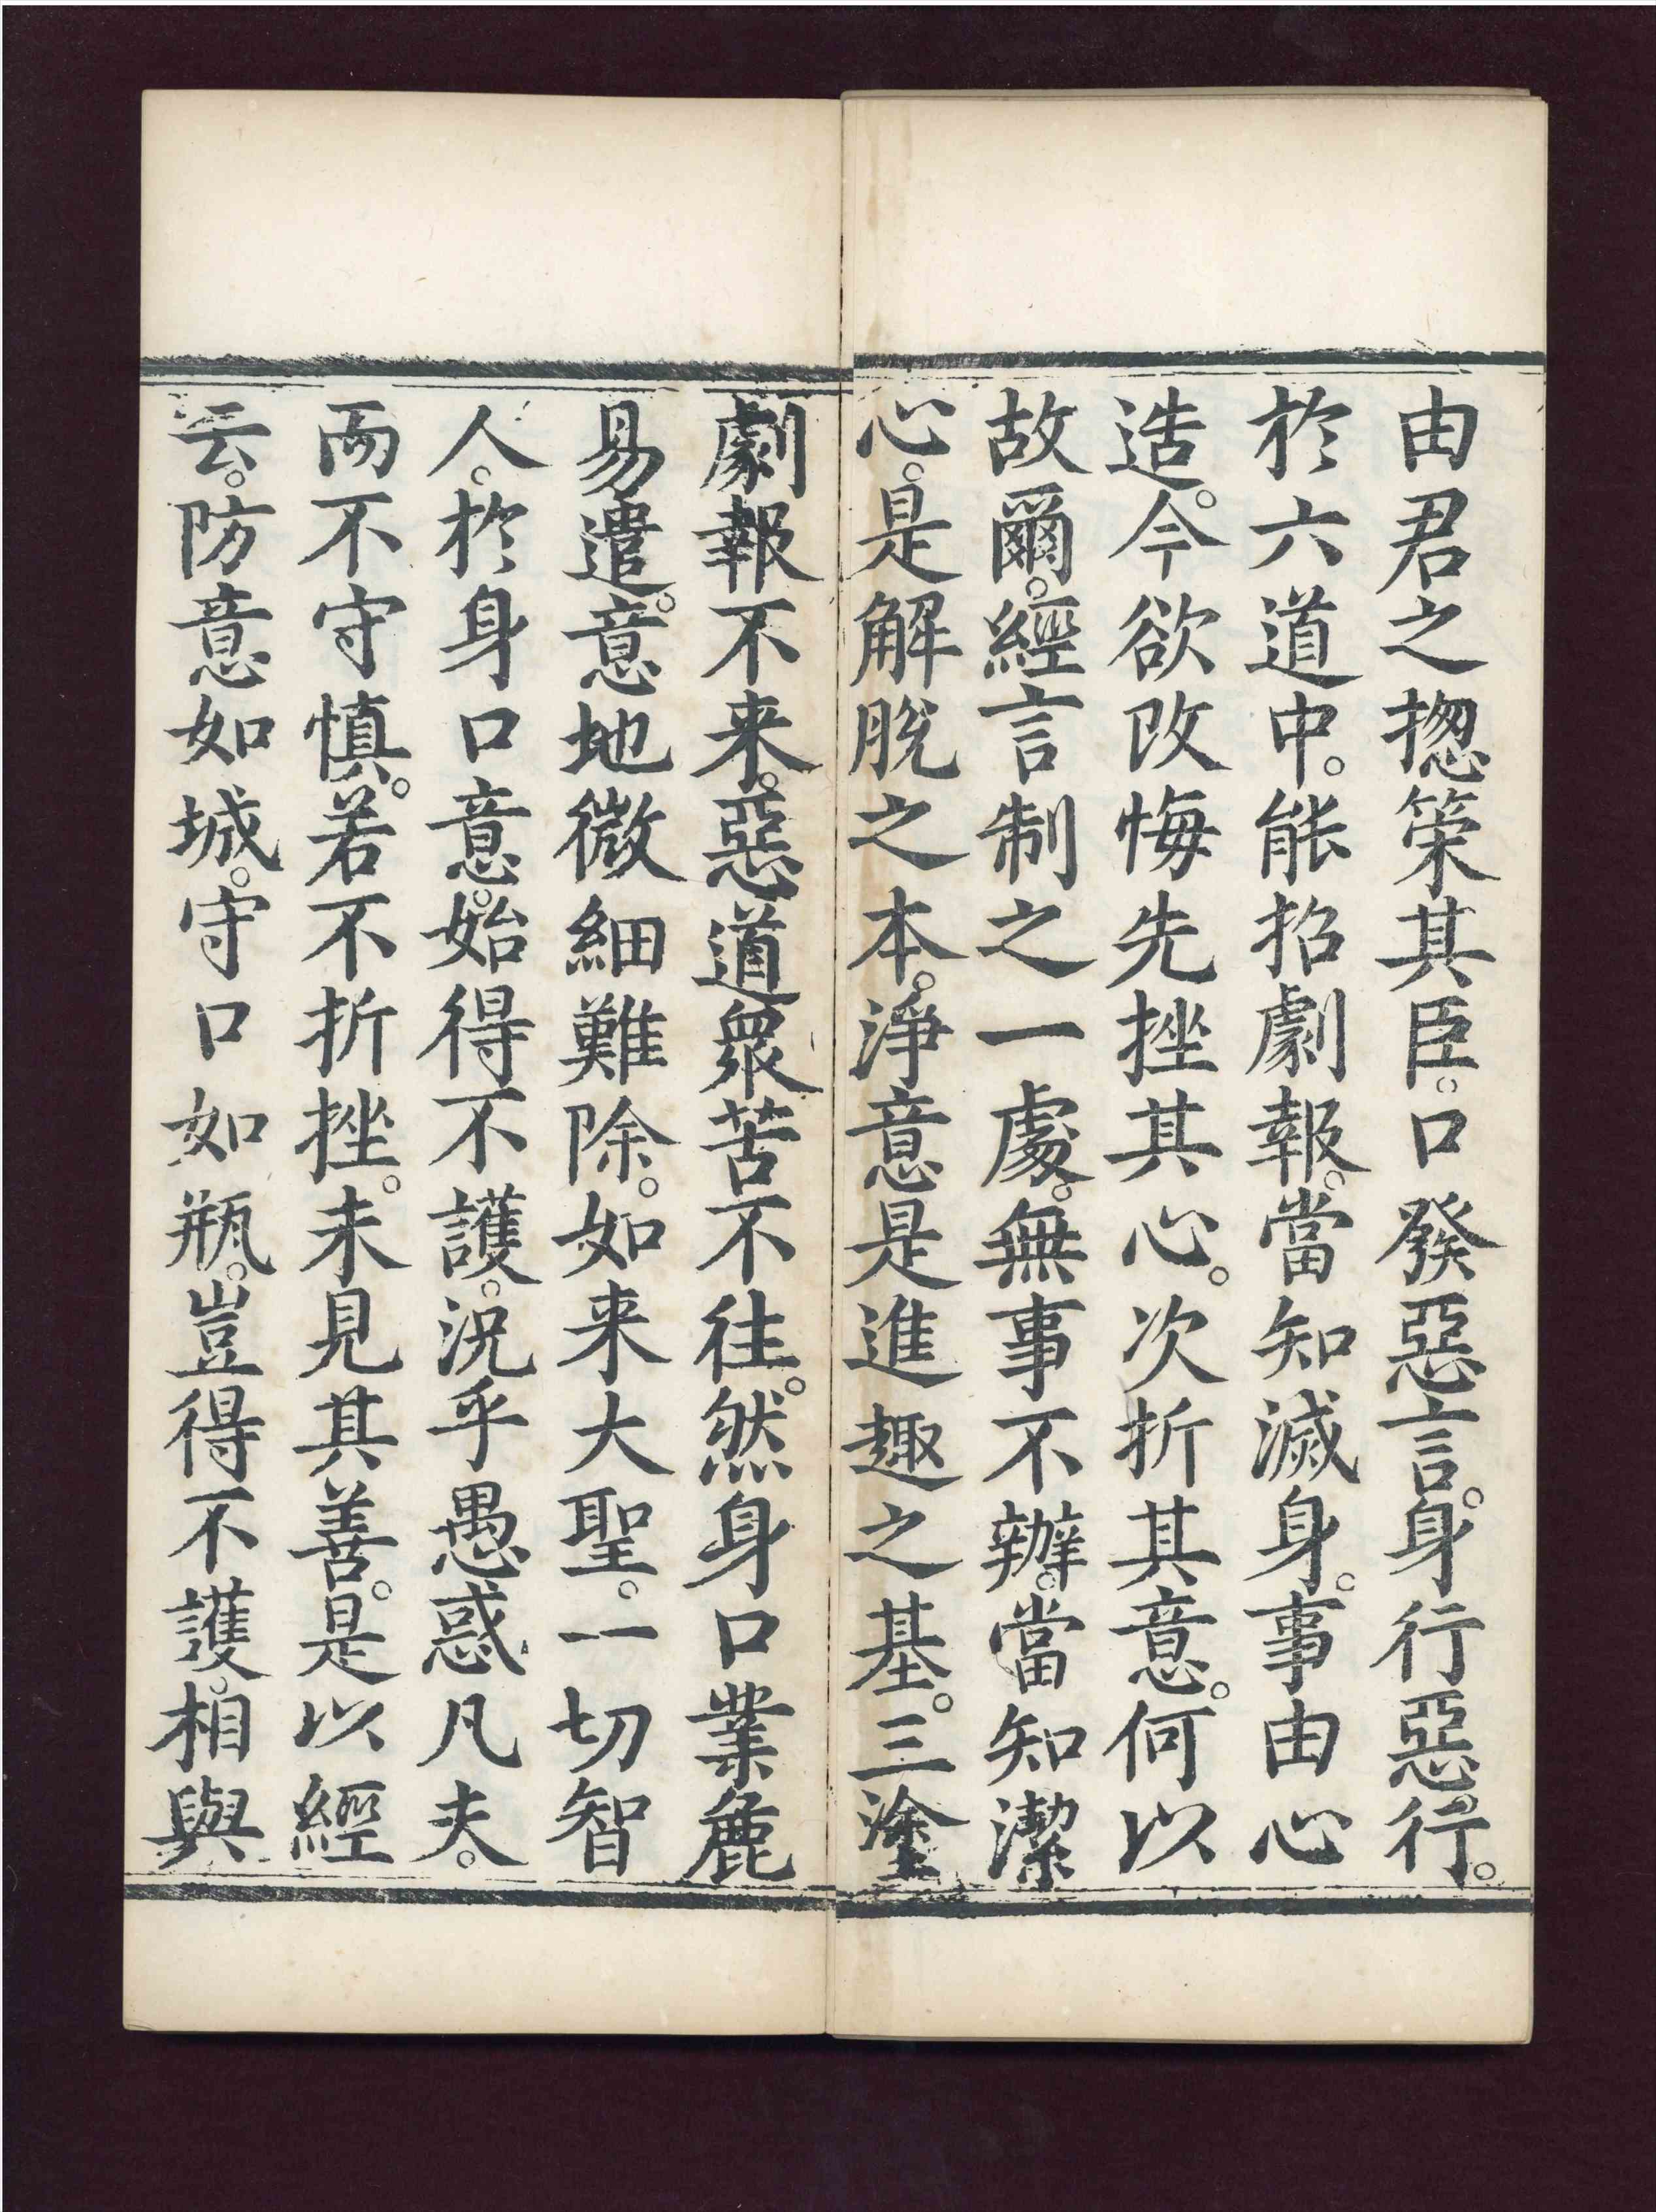 由君之揔策其臣。口發惡言。身行惡行。
於六道中。能招劇報。當知滅身。事由心
造。今欲改悔先挫其心。次折其意。何以
故爾。經言制之一處。無事不辦。當知潔
心。是解脫之本。淨意是進趣之基。三塗
劇報不来。惡道衆苦不往。然身口業麁
易遣。意地微細難除。如来大聖。一切智
人。於身口意。始得不護。況乎愚惑凡夫。
而不守慎。若不折挫。未見其善。是以經
云。防意如城。守口如瓶。豈得不護。相與